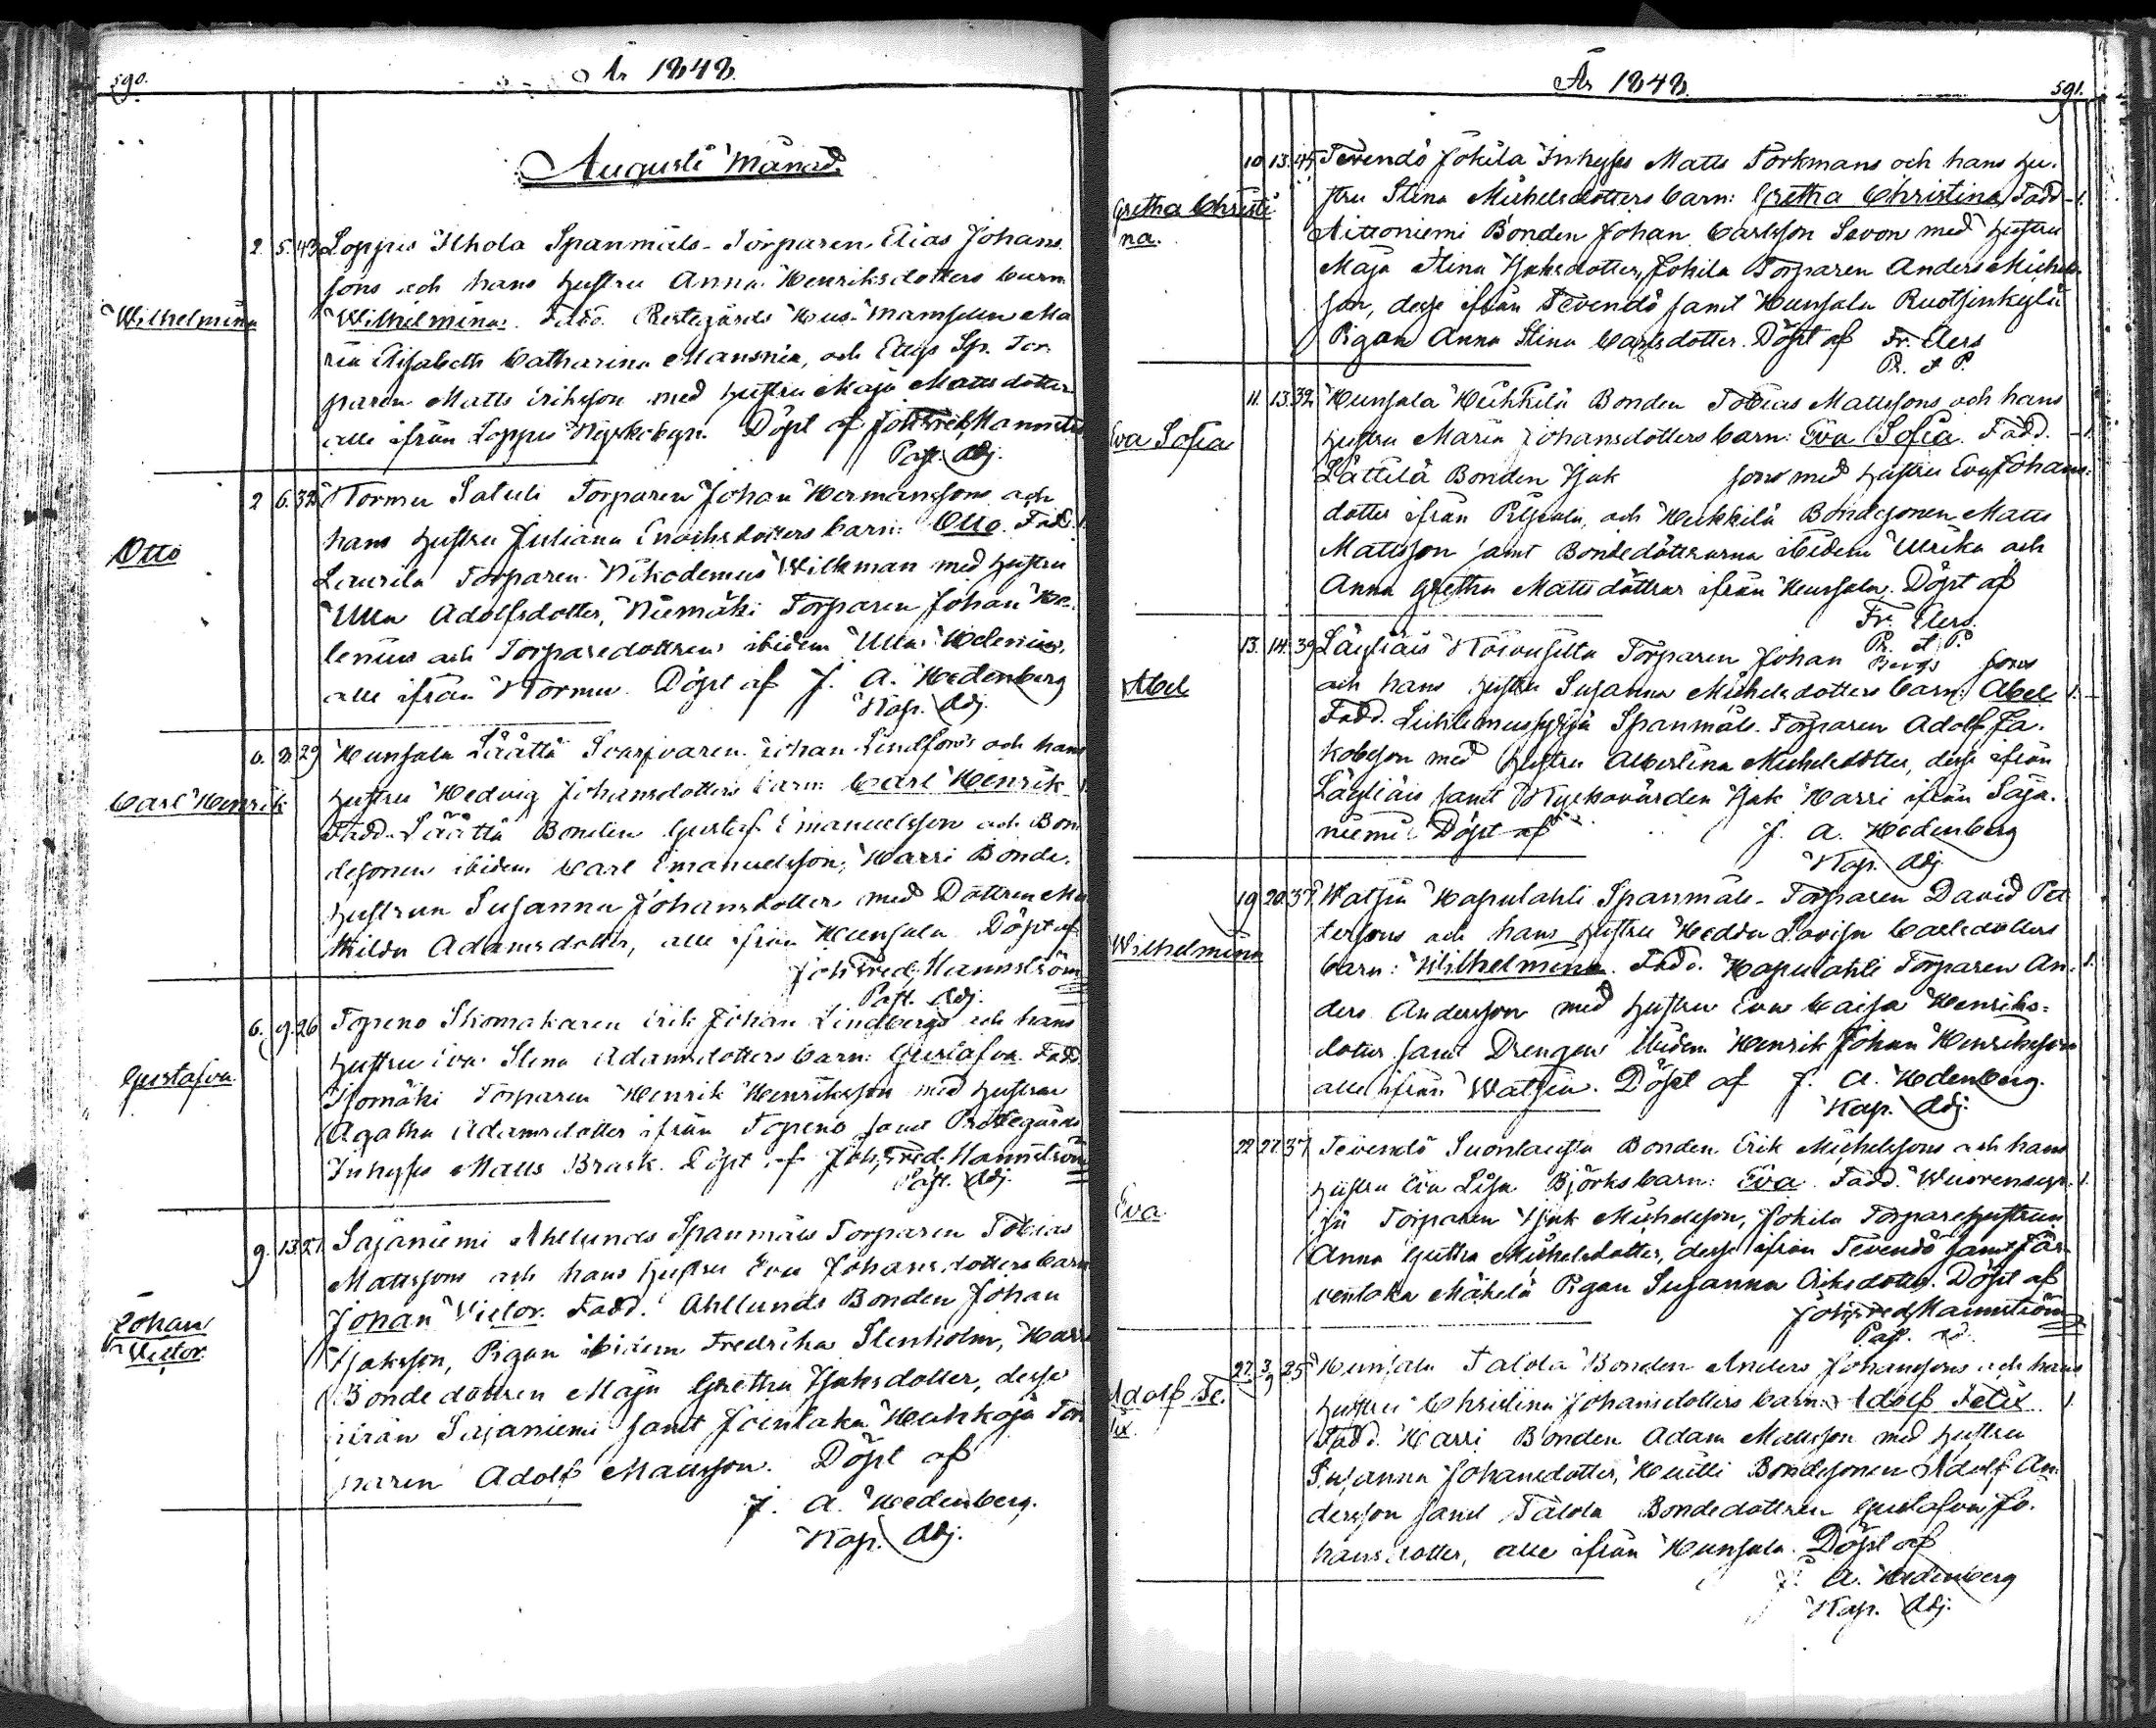 590.
År 1848.
Augusti Månad.
Wilhelmina
2. 5. 43 Loppis Ilhola Spanmåls-Torparen Elias Johans
sons och hans hustru Anna Henriksdotters barn
Wilhelmina. Fadd. Prestegårds Hus-Mamsellen Ma
ria Elisabeth Catharina och Sp. Tor
paren Matts Eriksson med hustru Maja Mattsdotter
alle ifrån Loppis Kyrkobyn. Döpt af Joh Fred Mannström
Past. Adj.
Otto
2 6. 32 Kormu Satuli Torparen Johan Hermanssons och
hans hustru Juliana Enochsdotters barn: Otto. Fad. 1.
Laurila Torparen Nikodemus Wilkman med hustru
Ulla Adolfsdotter, Niemäki Torparen Johan He-
lenius och Torparedottren ibidem Ulla Helenius,
alle ifrån Kormu. Döpt af J. A. Hedenberg
Kap. Adj.
Carl Henrik
6. 8. 29 Hunsala Läättä Svarfvaren Johan Lindfors's och hans
hustru Hedvig Johansdotters barn: Carl Henrik 1.
Fadd. Läättä Bonden Gustaf Emanuelsson och Bon
desonen ibidem Carl Emanuelsson; Harri Bonde-
hustrun Susanna Johansdotter med Dottren Ma
thilda Adamsdotter, alle ifrån Hunsala Döpt af
Joh Fred. Mannström
Past. Adj.
Gustafva
6. 9. 26 Topeno Skomakaren Erik Johan Lindbergs och hans
hustru Eva Stina Adamsdotters barn: Gustafva. Fadd
Isomäki Torparen Henrik Henriksson med hustru
Agatha Adamsdotter ifrån Topeno samt Prestegårds
Inhyses Matts Brask. Döpt af Joh. Fred. Mannström
Past. Adj.
Johan
Victor.
9. 13. 27 Sajaniemi Ahlunds Spanmåls Torparen Tobias
Mattssons och hans hustru Eva Johansdotters barn
Johan Victor. Fadd. Ahllunds Bonden Johan
Isaksson, Pigan ibidem Fredrika Stenholm, Harri
Bondedottren Maja Gretha Isaksdotter, desse
ifrån Sajaniemi samt Joenlaka Hukkoja Tor
paren Adolf Mattsson. Döpt af
J. A. Hedenberg.
Kap. Adj.
År 1848.
591.
Gretha Christi
na.
10 13. 45 Tevendö Jokila Inhyses Matts Torkmans och hans hu-
stru Stina Michelsdotters barn: Gretha Christina. Fadd 1.
Aittoniemi Bonden Johan Carlsson Savon med hustru
Maja Stina Isaksdotter, Jokila Torparen Anders Michels-
son, desse ifrån Tevendö samt Hunsala Ruotsinkylä
Pigan Anna Stina Carlsdotter. Döpt af Fr. Elers
Pr. et P.
Eva Sofia
11. 13. 32 Hunsala Heikkilä Bonden Tobias Mattssons och hans
hustru Maria Johansdotters barn: Eva Sofia. Fadd. 1.
Lättilä Bonden Isak sons med hustru Eva Johans-
dotter ifrån och Heikkilä Bondesonen Matts
Mattsson samt Bondedöttrarna ibidem Ulrika och
Anna Gretha Mattsdöttrar ifrån Hunsala. Döpt af
Fr. Elers.
Pr. et P.
Abel
13. 14. 39 Läyliäis Torparen Johan Bergs sons
och hans hustru Susanna Michelsdotters barn: Abel 1.
Fadd. Spanmåls-Torparen Adolf Ja-
kobsson med hustru Albertina Michelsdotter, desse ifrån
Läyliäis samt Kyrkovärden Isak Harri ifrån Saja-
niemi. Döpt af J. A. Hedenberg
Kap. Adj.
Wilhelmina
19 20. 37 Watsia Hapulahti Spanmåls-Torparen David Pet
terssons och hans hustru Hedda Lovisa Carlsdotters
barn: Wilhelmina. Fadd. Hapulahti Torparen An- 1.
ders Andersson med hustru Eva Caisa Henriks-
dotter samt Drengen ibidem Henrik Johan Henriksson
alle ifrån Watsia. Döpt af J. A. Hedenberg.
Kap. Adj.
Eva
22 27. 37 Tevendö Suontausta Bonden Erik Michelssons och hans
hustru Eva Lisa Björks barn: Eva. Fadd. Wuorensyr- 1.
jä Torparen Isak Michelsson, Jokila Torparehustrun
Anna Gretha Michelsdotter, desse ifrån Tevendö samt Jär-
Mäkelä Pigan Susanna Eriksdotter. Döpt af
Joh Fred Mannström
Past. Adj.
Adolf Fe-
lix.
27. 3/9 25 Hunsala Talola Bonden Anders Johanssons och hans
hustru Christina Johansdotters barn: Adolf Felix 1
Fadd. Harri Bonden Adam Mattsson med hustru
Susanna Johansdotter, Huitti Bondesonen Adolf An-
dersson samt Talola Bondedottren Gustafva Jo-
hansdotter, alle ifrån Hunsala. Döpt af
J. A. Hedenberg
Kap. Adj.